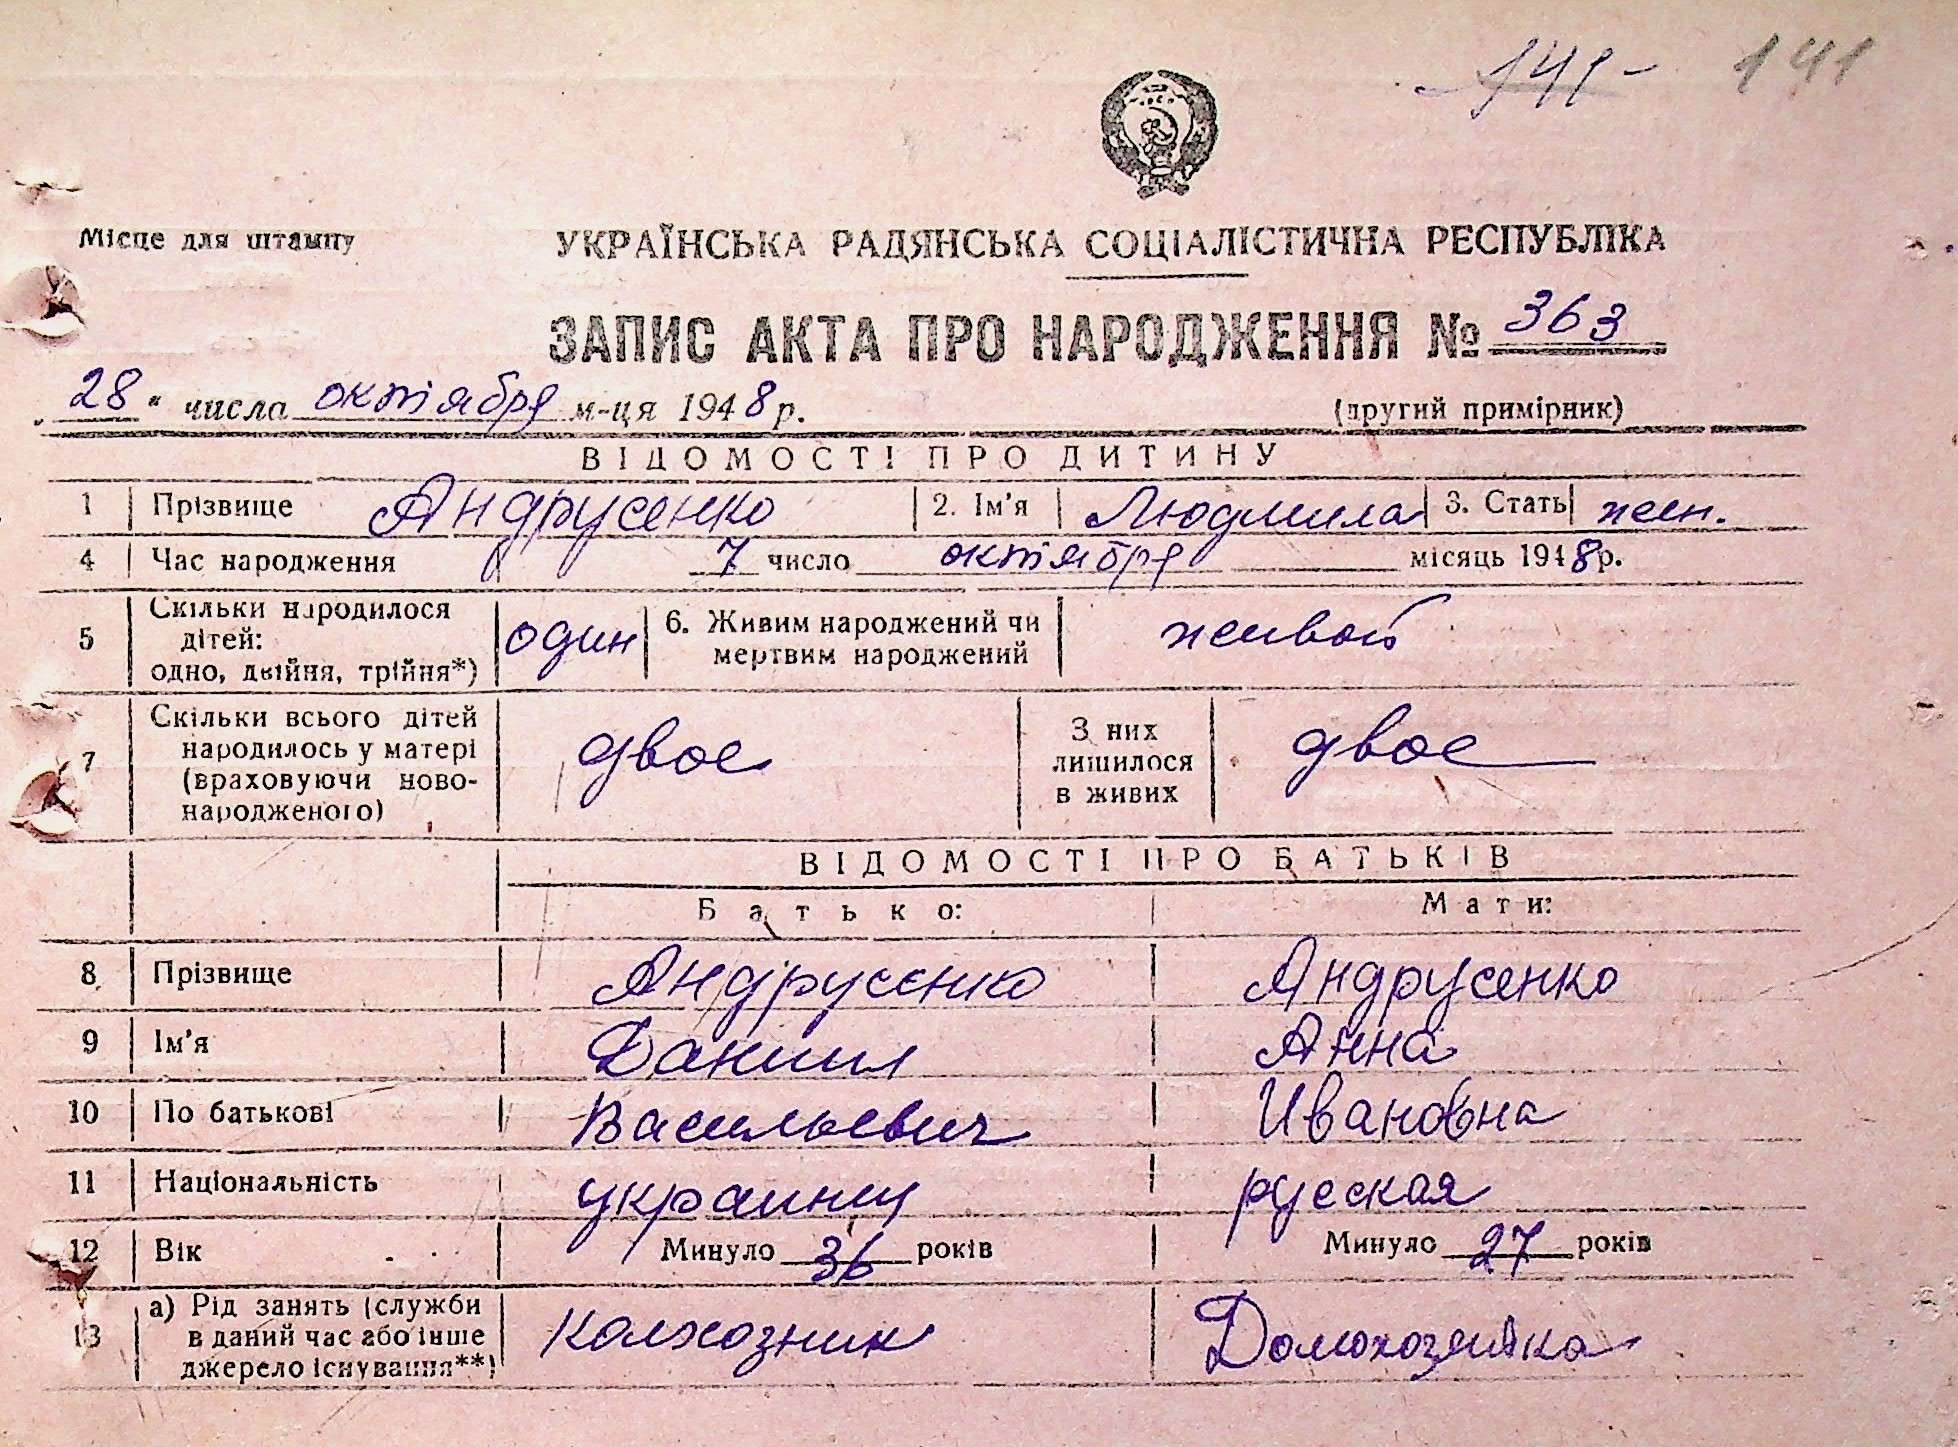 -141-   141
Місце для штампу
УКРАЇНСЬКА РАДЯНСЬКА СОЦІАЛІСТИЧНА РЕСПУБЛІКА
ЗАПИС АКТА ПРО НАРОДЖЕННЯ № 363
„28“ числа октября м-ця 1948 р. (другий примірник)
ВІДОМОСТІ ПРО ДИТИНУ
1 Прізвище Андрусенко 2. Ім'я Людмила 3. Стать жен.
4 Час народження 7 число октября місяць 1948 р.
5 Скільки народилося дітей: одно, двійня, трійня*) один 6. Живим народжений чи мертвим народжений живой
7 Скільки всього дітей народилось у матері (враховуючи ново-народженого) двое З них лишилося в живих двое
ВІДОМОСТІ ПРО БАТЬКІВ
Батько: Мати:
8 Прізвище Андрусенко Андрусенко
9 Ім'я Даниил Анна
10 По батькові Васильевич Ивановна
11 Національність украинец русская
12 Вік Минуло 36 років Минуло 27 років
13 а) Рід занять (служби в даний час або інше джерело існування**) Колхозник Домохозяйка